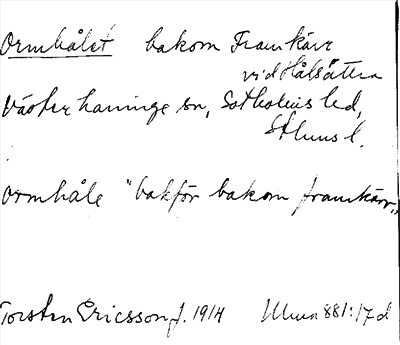 Ormhålet bakom Framkärr
vid Hålsättra
Västerhaninge sn, Sotholms hd,
Sthlms l.
ormhåle "bakför bakom framkärr"
Torsten Ericsson f. 1914 Ulma 881:17d